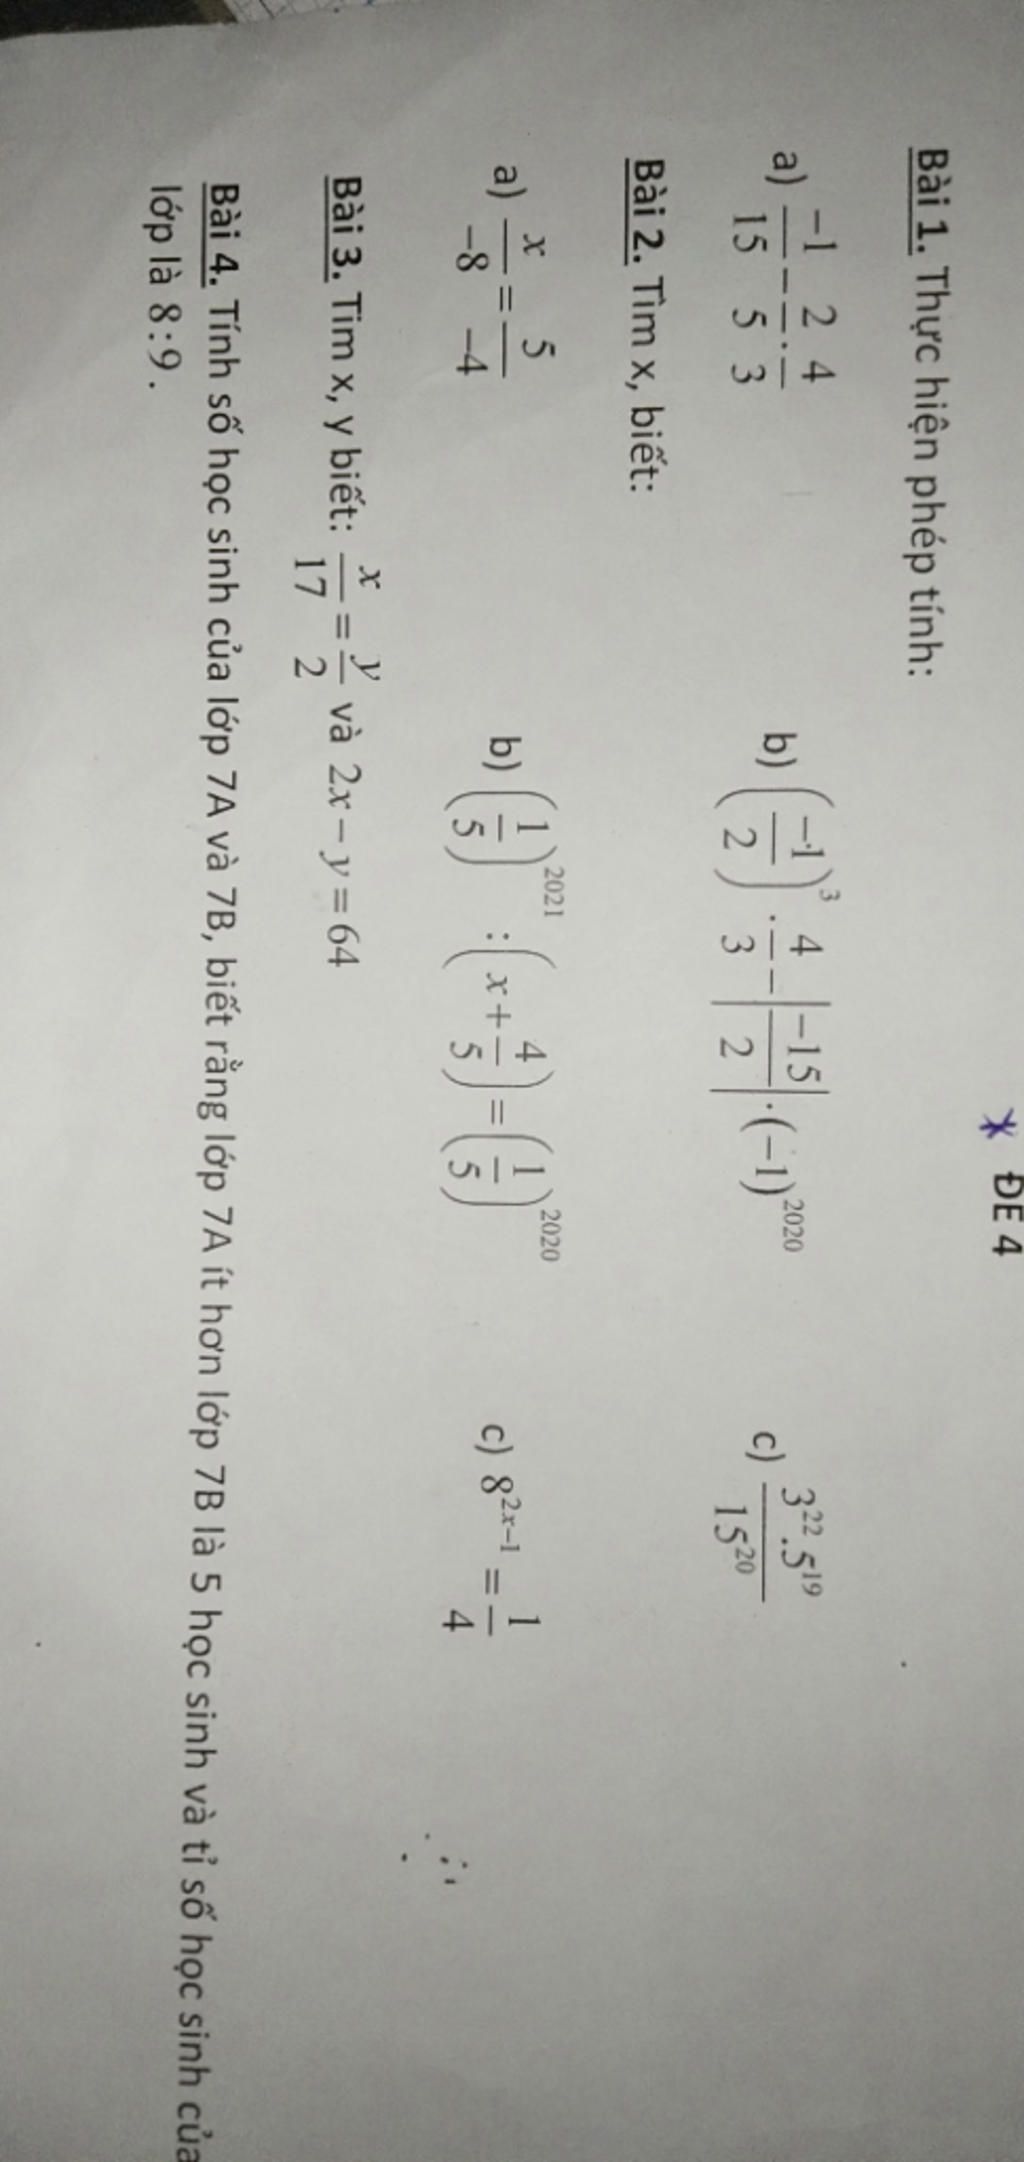 * ĐE 4
Bài 1. Thực hiện phép tính:
a) \frac{-1}{15} - \frac{2}{5} \cdot \frac{4}{3}   b) \left(\frac{-1}{2}\right)^3 \cdot \frac{4}{3} - \left|\frac{-15}{2}\right| \cdot (-1)^{2020}   c) \frac{3^{22} . 5^{19}}{15^{20}}
Bài 2. Tìm x, biết:
a) \frac{x}{-8} = \frac{5}{-4}   b) \left(\frac{1}{5}\right)^{2021} : \left(x + \frac{4}{5}\right) = \left(\frac{1}{5}\right)^{2020}   c) 8^{2x-1} = \frac{1}{4}
Bài 3. Tìm x, y biết: \frac{x}{17} = \frac{y}{2} và 2x - y = 64
Bài 4. Tính số học sinh của lớp 7A và 7B, biết rằng lớp 7A ít hơn lớp 7B là 5 học sinh và tỉ số học sinh của
lớp là 8:9.